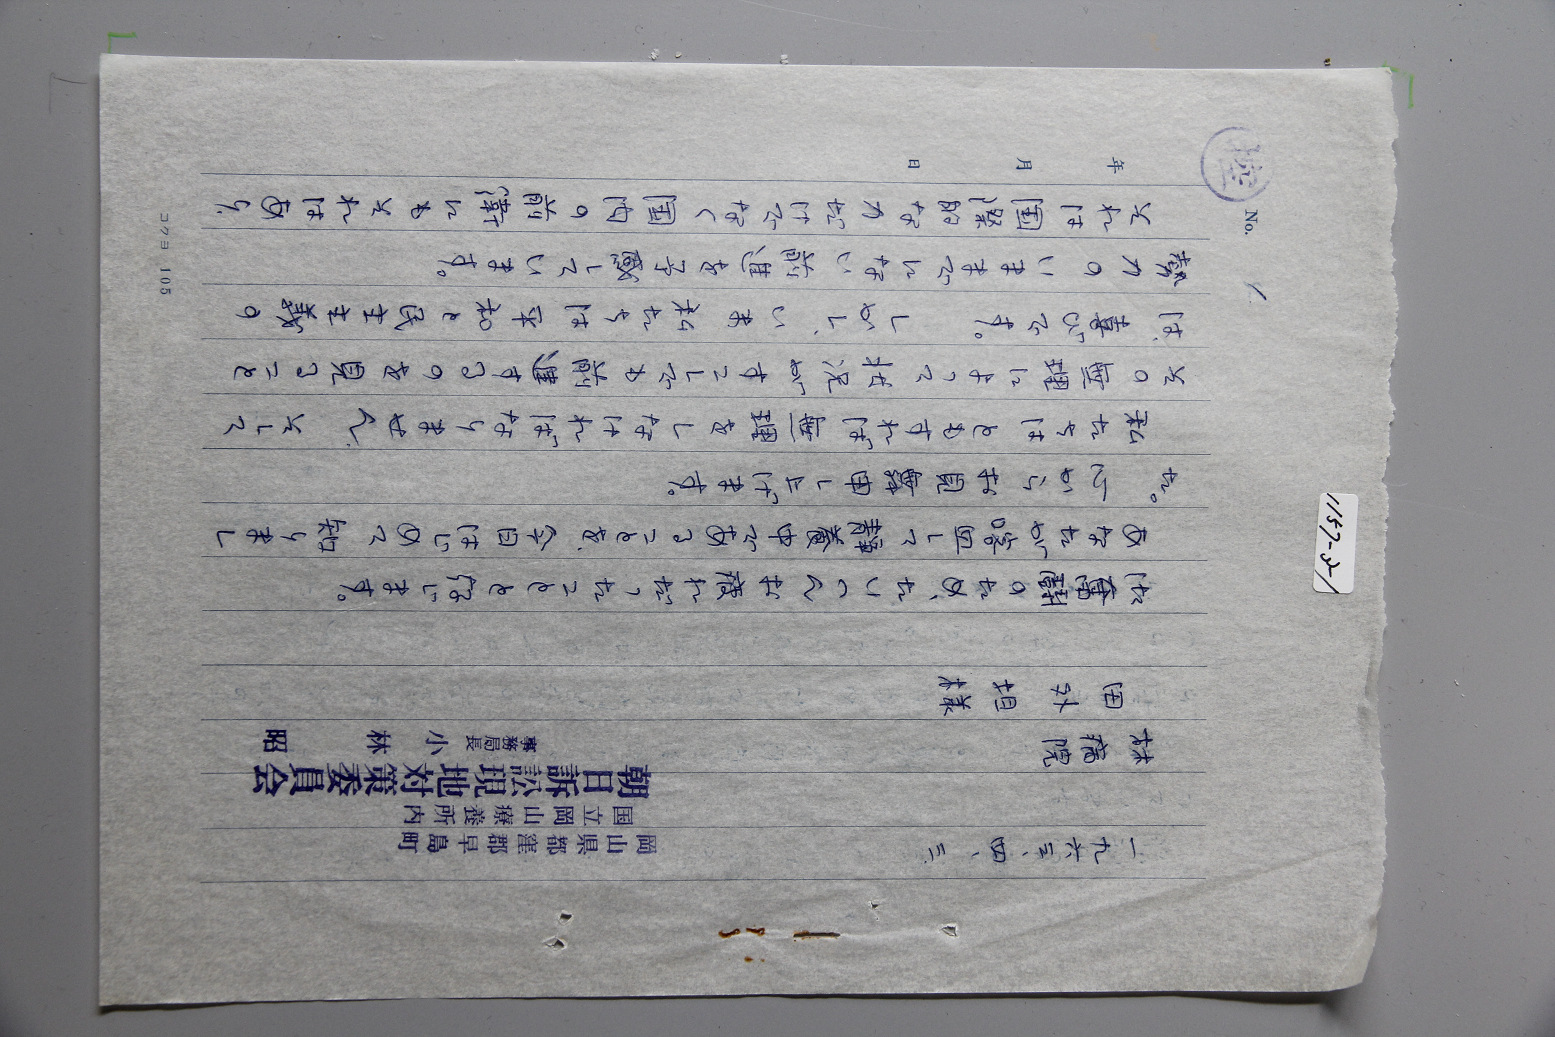 No. 1
年 月 日
一九六三、四、三
岡山県都窪郡早島町
国立岡山療養所内
朝日訴訟現地対策委員会
事務局長 小林 昭
林病院
様
奮闘のため、たいへんお疲れだったことと存じます。
あなたが喀血して静養中であることを、今日はじめて知りまし
た。心からお見舞申し上げます。
私たちはともすれば無理をしなければなりません。そして
その無理によって状況がすこしでも前進するのを見ること
は、喜びです。しかし、いま私たちは平和と民主主義の
勢力のいままでにない前進を予感しています。
それは国際的な力だけでなく国内の情勢にもそれはあり、
コクヨ 105
1157-5-1